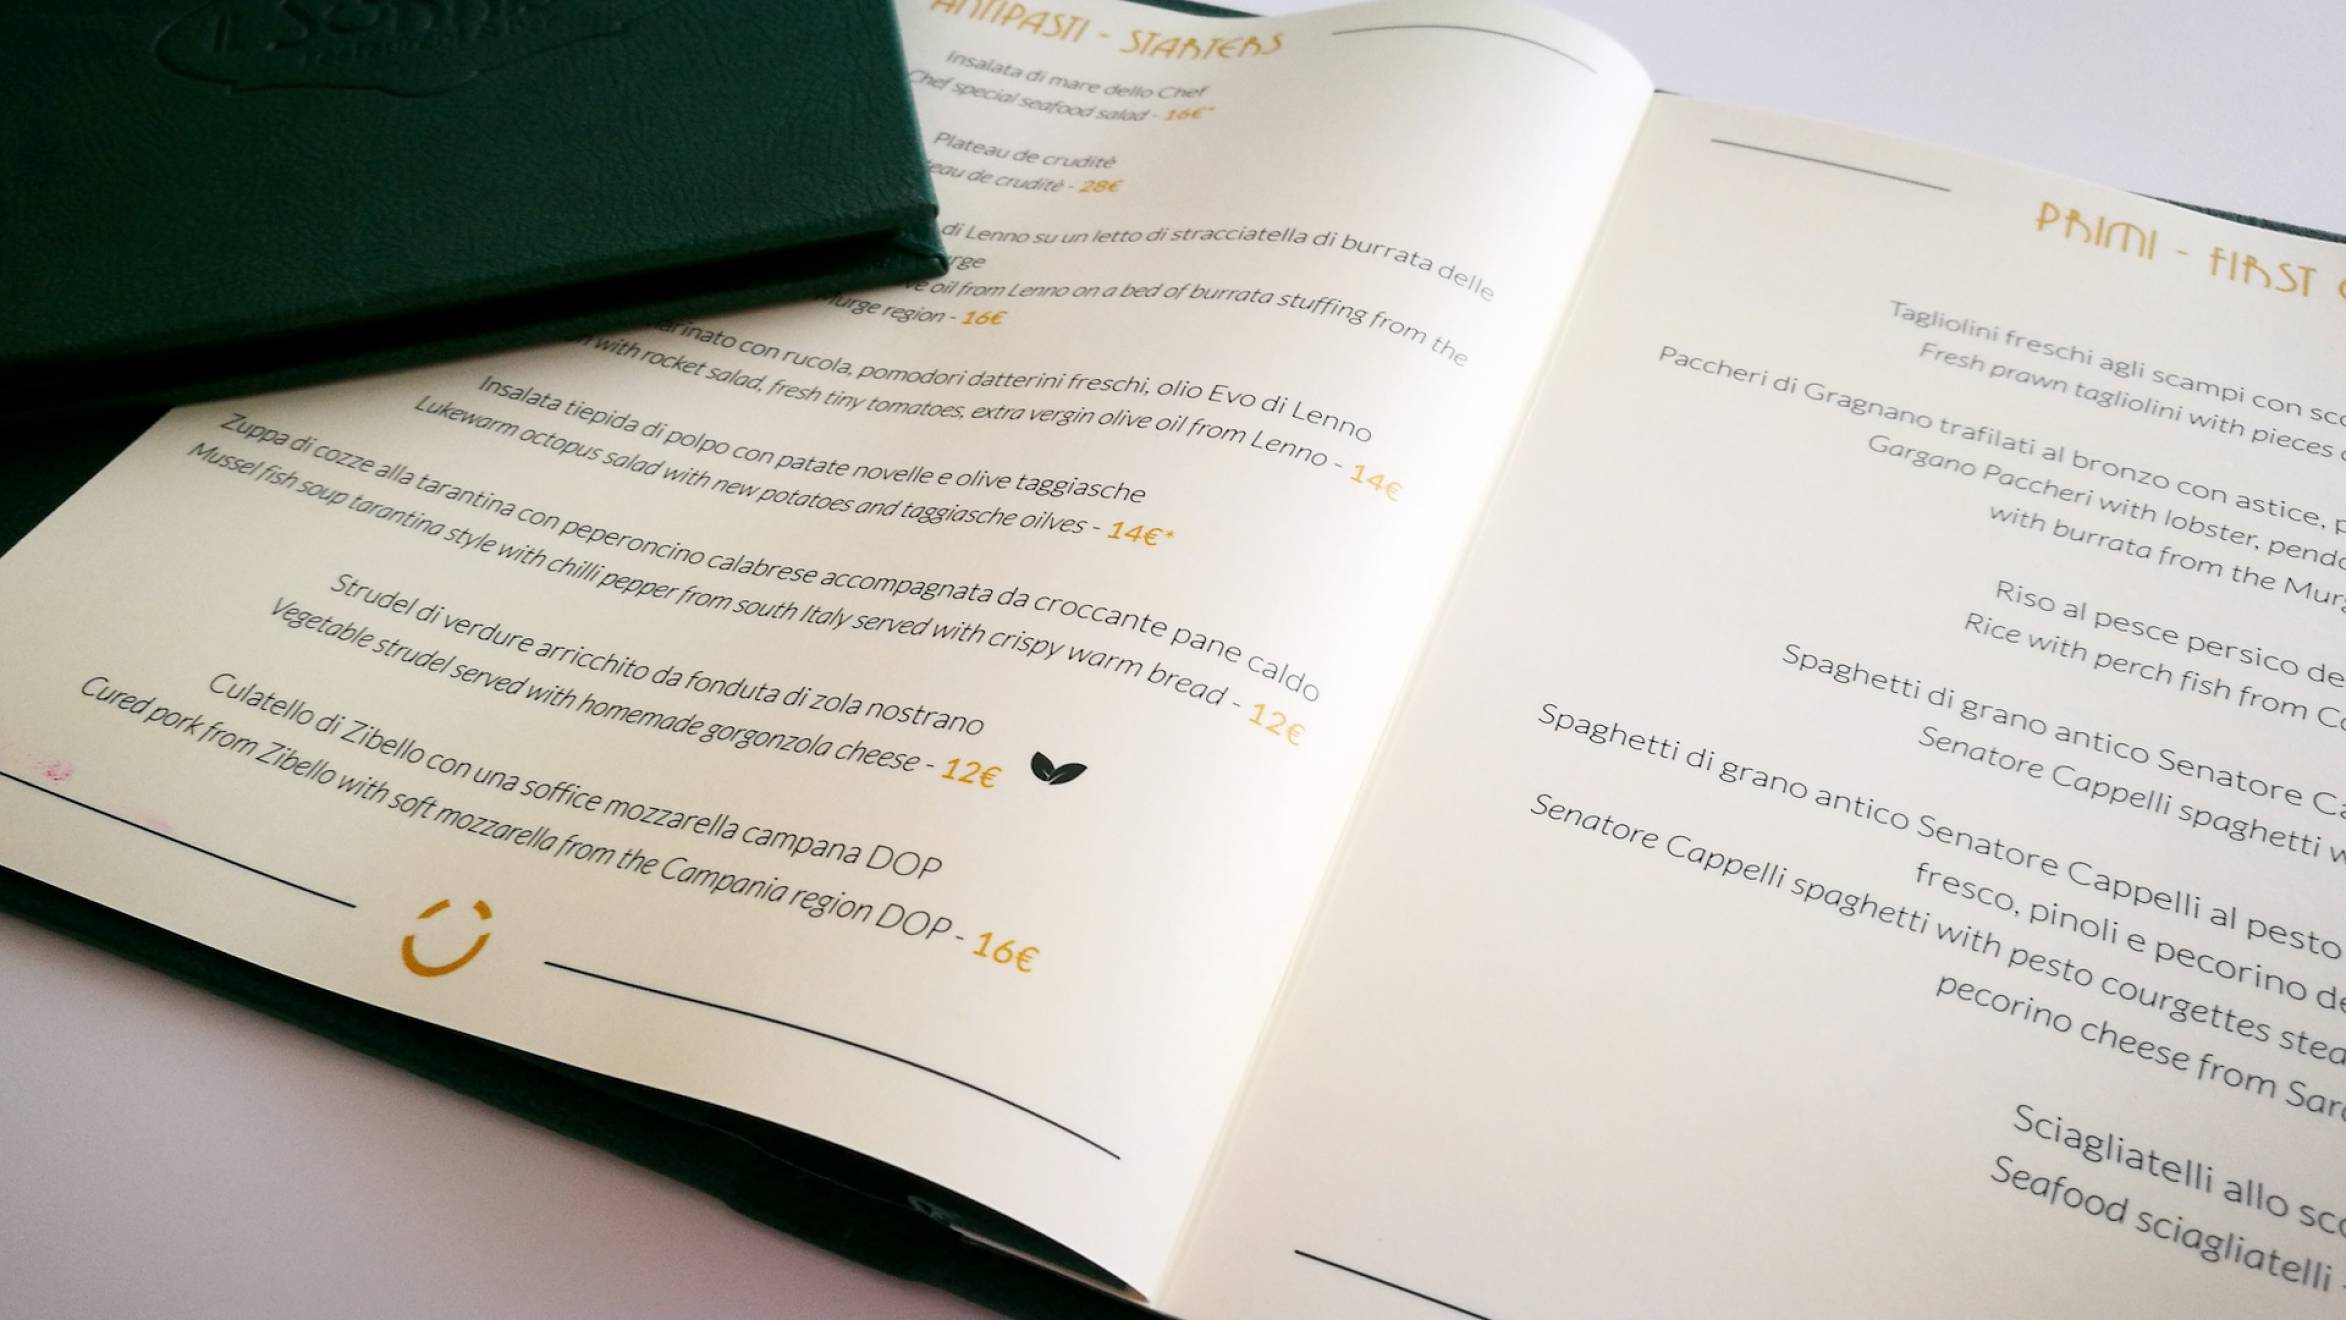 IL
ANTIPASTI - STARTERS
Insalata di mare dello Chef
Chef special seafood salad - 16€*
Plateau de cruditè
de cruditè - 28€
di Lenno su un letto di stracciatella di burrata delle
oil from Lenno on a bed of burrata stuffing from the
Murge region - 16€
con rucola, pomodori datterini freschi, olio Evo di Lenno
with rocket salad, fresh tiny tomatoes, extra vergin olive oil from Lenno - 14€
Insalata tiepida di polpo con patate novelle e olive taggiasche
Lukewarm octopus salad with new potatoes and taggiasche oilves - 14€*
Zuppa di cozze alla tarantina con peperoncino calabrese accompagnata da croccante pane caldo
Mussel fish soup tarantina style with chilli pepper from south Italy served with crispy warm bread - 12€
Strudel di verdure arricchito da fonduta di zola nostrano
Vegetable strudel served with homemade gorgonzola cheese - 12€
Culatello di Zibello con una soffice mozzarella campana DOP
Cured pork from Zibello with soft mozzarella from the Campania region DOP - 16€
PRIMI - FIRST
Tagliolini freschi agli scampi con
Fresh prawn tagliolini with pieces
Paccheri di Gragnano trafilati al bronzo con astice,
Gargano Paccheri with lobster,
with burrata from the
Riso al pesce persico
Rice with perch fish from
Spaghetti di grano antico Senatore
Senatore Cappelli spaghetti
Spaghetti di grano antico Senatore Cappelli al pesto
fresco, pinoli e pecorino
Senatore Cappelli spaghetti with pesto courgettes
pecorino cheese from
Sciagliatelli allo
Seafood sciagliatelli